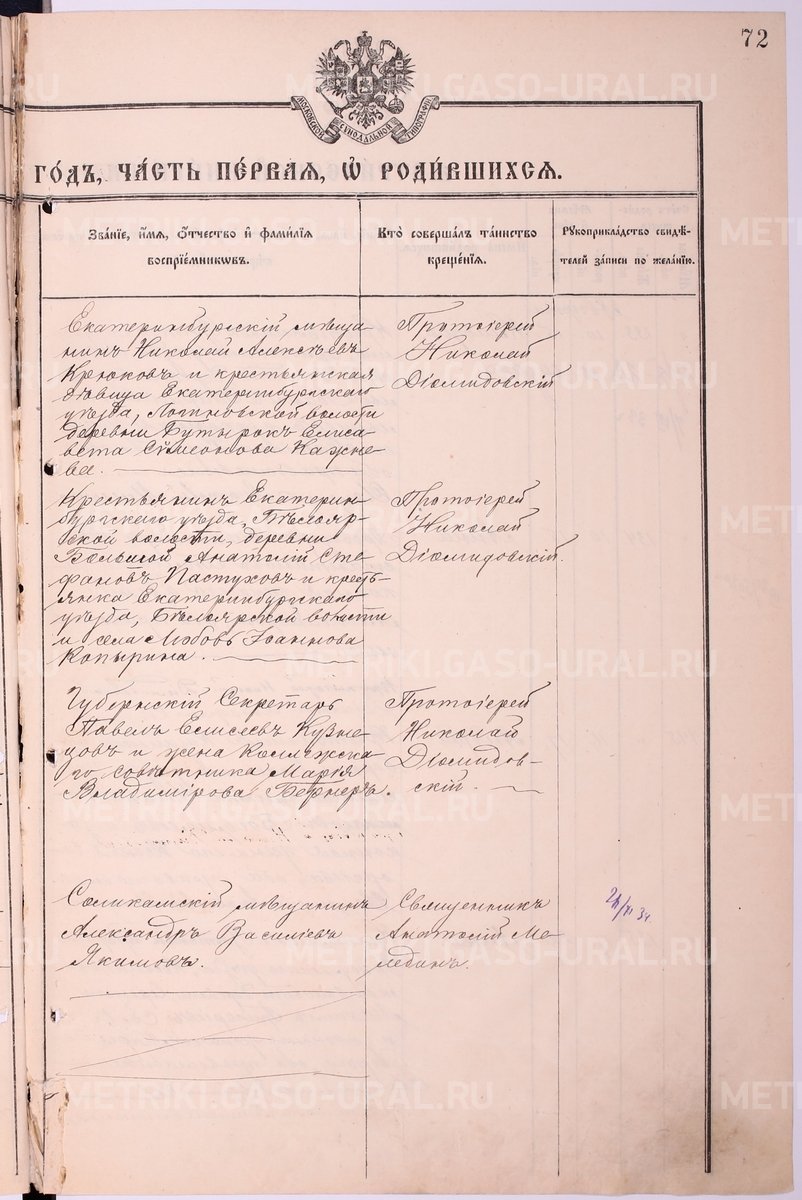 72
МОСКОВСКОЙ СѴНОДАЛЬНОЙ ТИПОГРАФІИ
ГО́ДЪ, ЧА́СТЬ ПЕ́РВАЯ, Ѡ҆ РОДИ́ВШИХСЯ.
Зва́нїе, и҆́мя, ѻ҆́тчество и҆ фами́лїя
воспрїе́мникѡвъ.
Кто̀ соверша́лъ та́инство
креще́нїя.
Рꙋкоприкла́дство свидѣ́-
телей за́писи по жела́нїю.
Екатеринбургскій мѣща-
нинъ Николай Алексѣевъ
Крюковъ и крестьянская
дѣвица Екатеринбургскаго
уѣзда, Логиновской волости
деревни Бутырокъ Елиса-
вета Сѵмеонова Кажне-
ва.
Протоіерей
Николай
Діомидовскій
Крестьянинъ Екатерин-
бургскаго уѣзда, Бѣлояр-
ской волости, деревни
Большой Анатолій Сте-
фановъ Пастуховъ и кресть-
янка Екатеринбургскаго
уѣзда, Бѣлоярской волости
и села Любовь Іоаннова
Копырина.
Протоіерей
Николай
Діомидовскій.
Губернскій Секретарь
Павелъ Елисеевъ Кузне-
цовъ и жена Коллежска-
го Совѣтника Марія
Владимірова Бернеръ.
Протоіерей
Николай
Діомидов-
скій.
Соликамскій мѣщанинъ
Александръ Василіевъ
Якимовъ.
Священникъ
Анатолій Ме-
лединъ.
METRIKI.GASO-URAL.RU